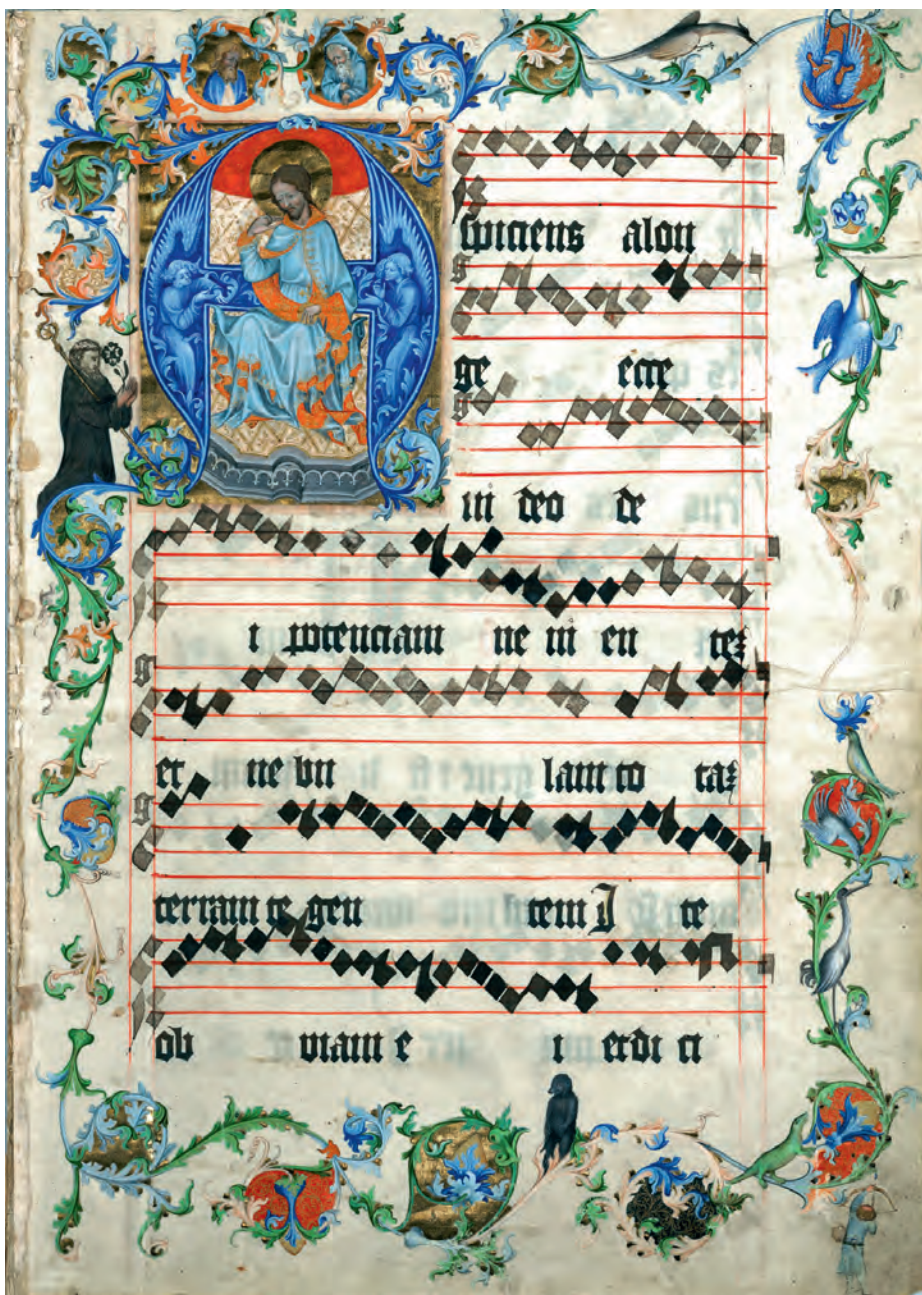 Aspiciens alon
ge ecce
ui deo de
i potenciam ue ni en teʒ
et ne bu lam to taʒ
terram te gen tem I te
ob uiam e i et di ci